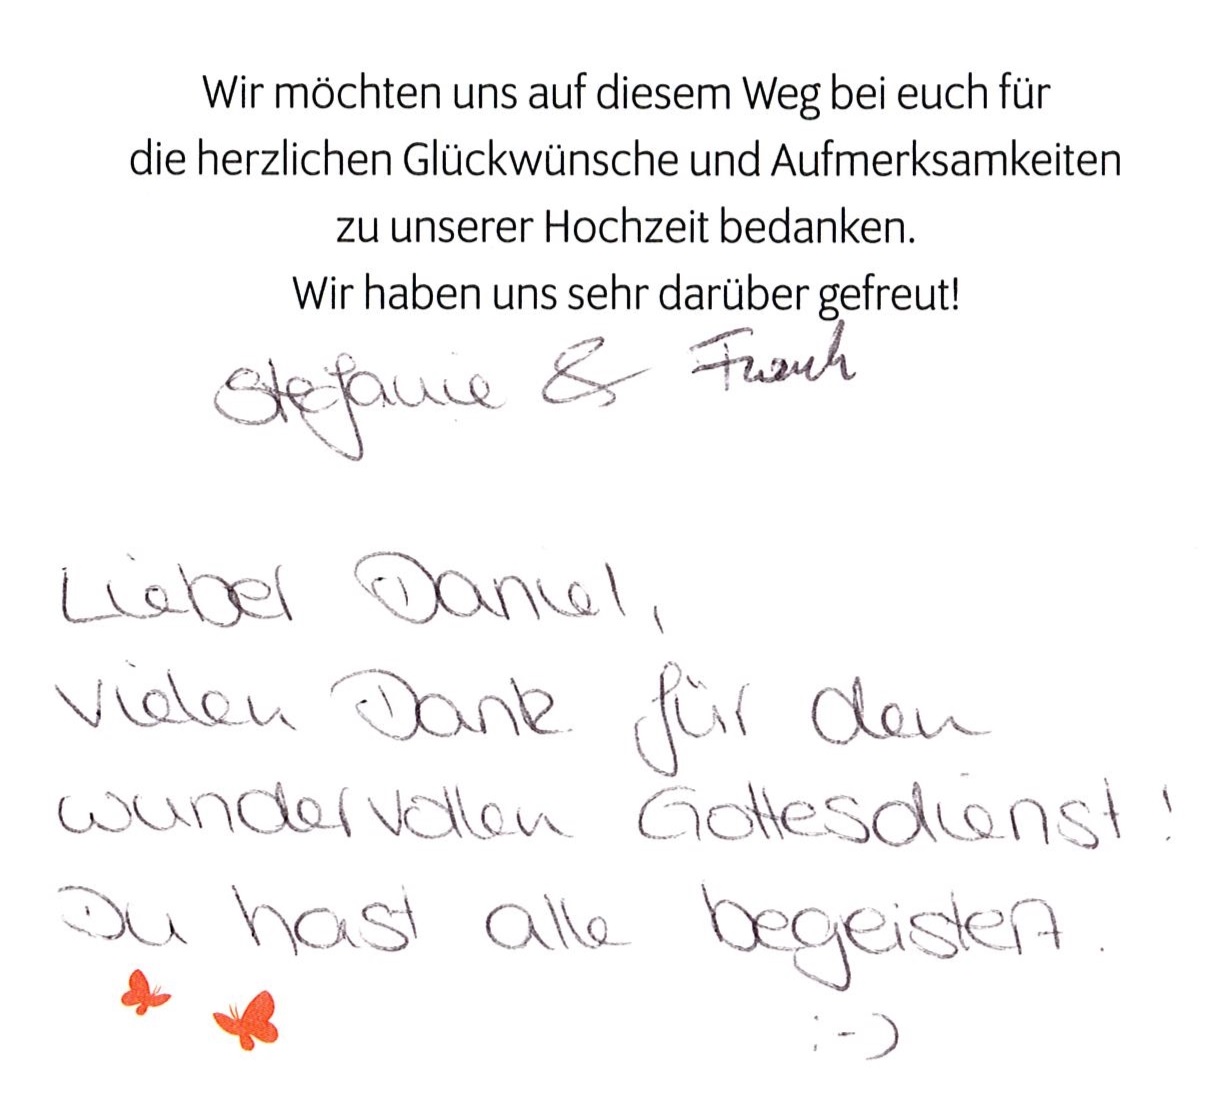 Wir möchten uns auf diesem Weg bei euch für
die herzlichen Glückwünsche und Aufmerksamkeiten
zu unserer Hochzeit bedanken.
Wir haben uns sehr darüber gefreut!
Stefanie & Frank
Lieber Daniel,
vielen Dank für den
wundervollen Gottesdienst!
Du hast alle begeistert.
:-)